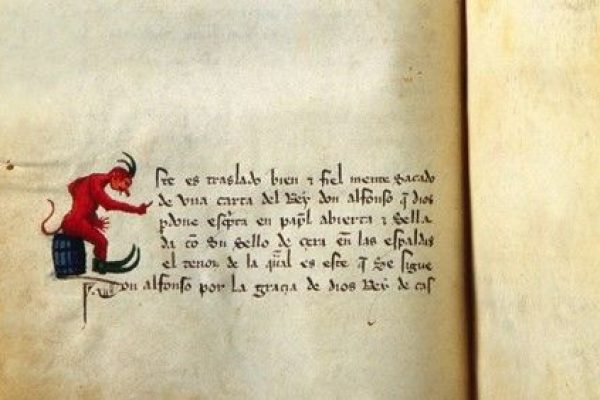 ste es traslado bien ⁊ fiel mente sacado
de vna carta del Rey don alfonso q̃ dios
ꝑdone esc̃pta en papl̃ abierta ⁊ sella
da cõ su sello de çera en̄ las espaldas
el tenor de la qual es este q̃ se sigue
on alfonso por la graçia de dios Rey de cas